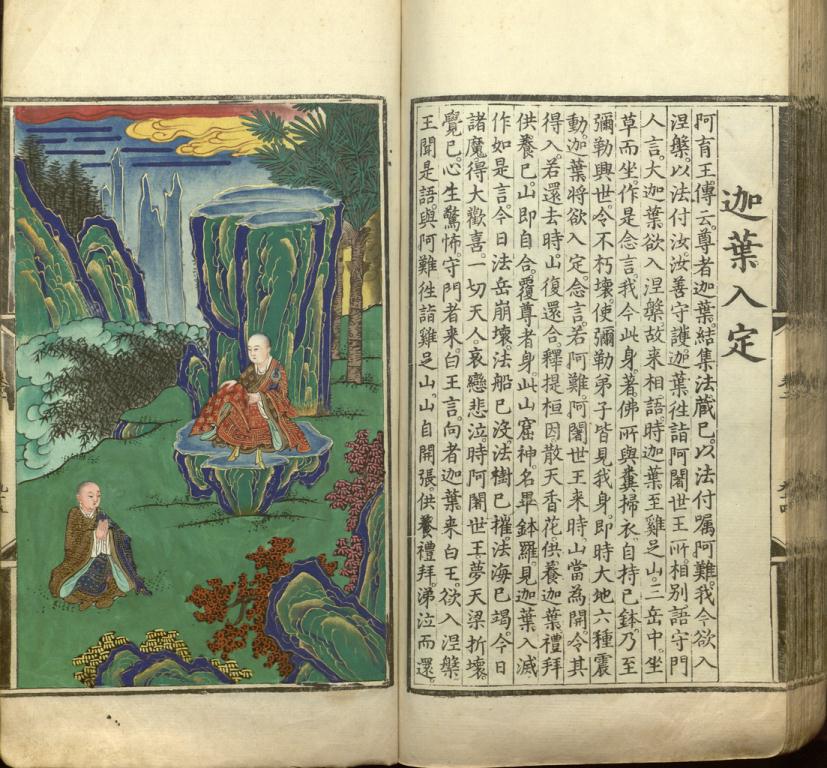 迦葉入定
阿育王傳云。尊者迦葉。結集法藏已。以法付囑阿難。我今欲入
涅槃。以法付汝。汝善守護。迦葉徃詣阿闍世王所相別。語守門
人言。大迦葉欲入涅槃。故來相語。時迦葉至雞足山。三岳中。坐
草而坐。作是念言。我今此身。著佛所與糞掃衣。自持己鉢。乃至
彌勒興世。令不朽壞。使彌勒弟子。皆見我身。即時大地六種震
動。迦葉將欲入定。念言。若阿難。阿闍世王來時。山當為開。令其
得入。若還去時。山復還合。釋提桓因。散天香花。供養迦葉。禮拜
供養已。山即自合。覆尊者身。此山窟神。名畢鉢羅。見迦葉入滅
作如是言。今日法岳崩壞。法船已沒。法樹已摧。法海已竭。今日
諸魔。得大歡喜。一切天人。哀戀悲泣。時阿闍世王。夢天梁折壞。
覺已。心生驚怖。守門者來白王言。向者迦葉來白王。欲入涅槃。
王聞是語。與阿難徃詣雞足山。山自開張。供養禮拜。涕泣而還。